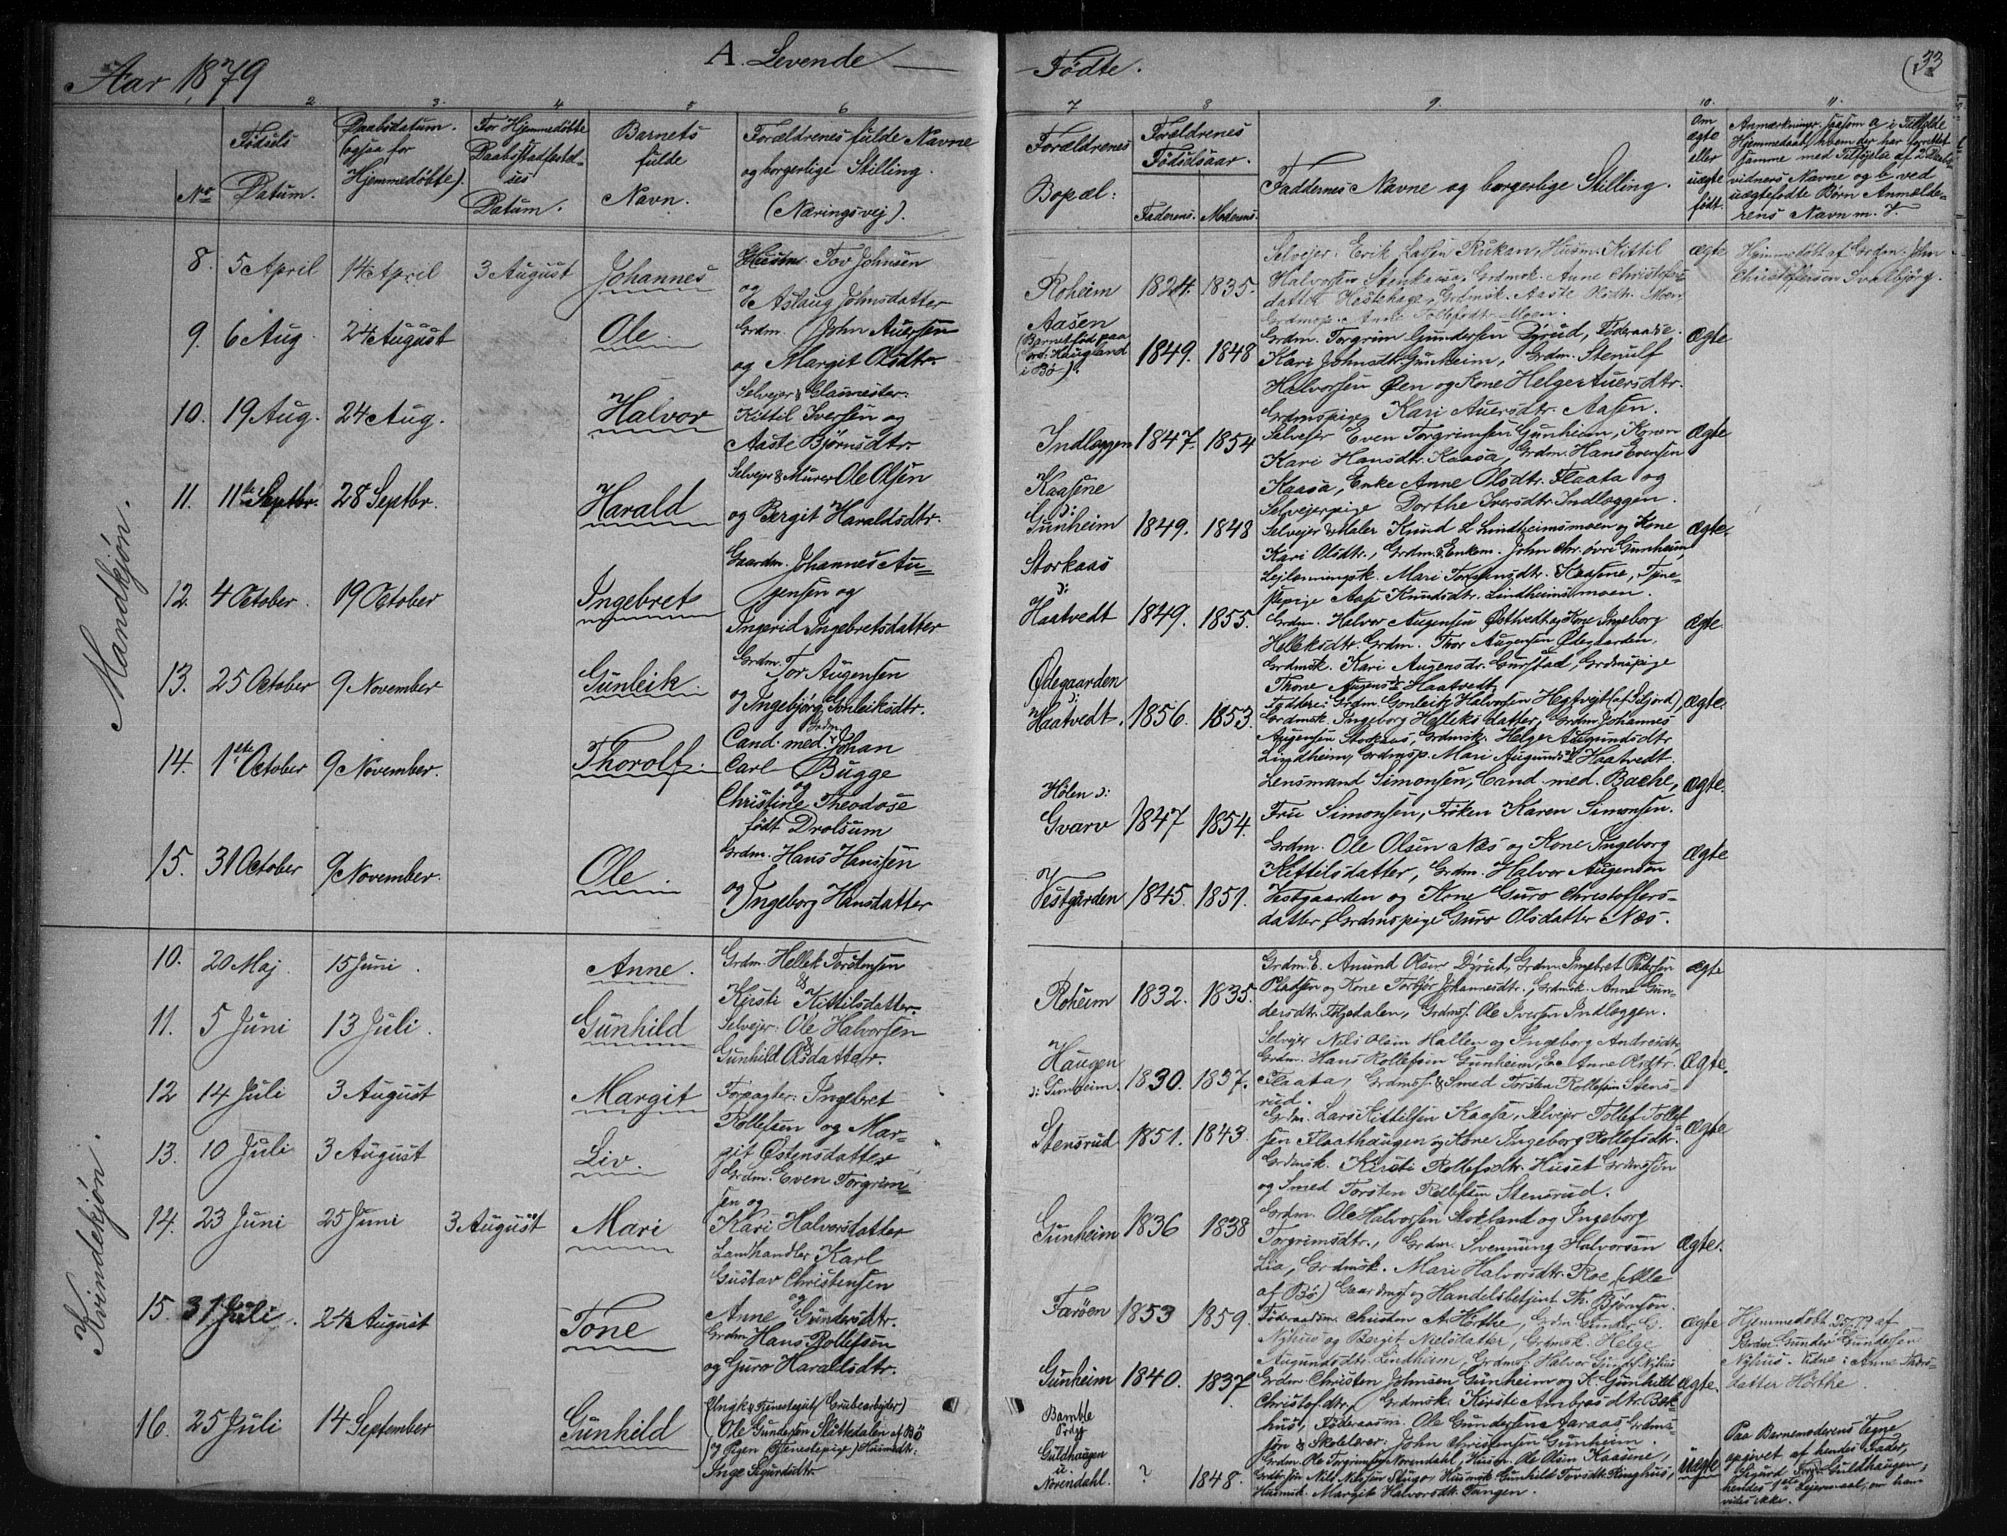 Aar 1879
A. Levende
Fødte.
(33
2 3. 4 5 6
7 8 9. 10. 11.
No
Fødsels
Datum.
Daabsdatum.
(ogsaa for
Hjemmedøbte).
For Hjemmedøbte
Daabsstadfæstel-
ses
Datum.
Barnets
fulde
Navn.
Forældrenes fulde Navne
og borgerlige Stilling.
(Næringsvej).
Forældrenes
Bopæl:
Forældrenes
Fødselsaar.
Faderens. Moderens.
Faddernes Navne og borgerlige Stilling.
Om
ægte
eller
uægte
født.
Anmærkninger, saasom a i Tilfælde
Hjemmedaab, hvem der har forrettet
samme med Tilføjelse af 2 Daabs-
vidners Navne og b, ved
uægtefødte Børn Anmelde-
rens Navn m. V.
Mandkjøn.
8. 5 April 14 April 3 August Johannes
Husm. Tov Johnsen
og
Aslaug Johnsdatter
Roheim 1824. 1835.
Selvejer Erik Larsen Rukan, Husm. Kittil
Halvorsen Stenkaasa, Grdmsk. Anne Christofers-
datter Haatehage, Grdmsk. Aaste Olsdtr. Moen
Grdmsp. Anne Tollefsdtr. Moen.
ægte
Hjemmedøbt af Grdm. John
Christophersen Svalbjørg.
9. 6 Aug. 24 August Ole
Grdm. John Auersen
og Margit Olsdtr.
Aasen
(Barnet født paa
Nord. Haugland
i Bø).
1849. 1848
Grdm. Torgrim Gundersen Dyrud, Føderaadse.
Kari Johnsdtr. Gunheim, Grdm. Stenulf
Halvorsen Øen og Kone Helge Auersdtr.
Grdmspige Kari Auersdtr. Aasen.
Ægte
10. 19 Aug. 24 Aug. Halvor
Selvejer & Glarmester
Kittil Iversen og
Aaste Bjørnsdtr.
Indlæggen 1847. 1854
Selvejer Even Torgrimsen Gunheim, Konen
Kari Hansdtr. Kaasa, Grdm. Hans Evensen
Kaasa, Enke Anne Olsdtr. Flaata og
Selvejerpige Dorthe Iversdtr. Indlæggen.
Ægte
11. 11te Septbr. 28 Septbr. Harald
Selvejer & Murer Ole Olsen
og Bergit Haraldsdtr.
Kaasene
ɔ:
Gunheim 1849. 1848
Selvejer & Maler Knud L. Lindheimsmoen og Kone
Kari Olsdtr., Grdm. & Enkem. John Chr. øvri Gunheim,
Lejlænningsk. Mari Torstensdtr. Kaasene, Tjene-
stepige Aase Knudsdtr. Lindheimsmoen.
Ægte.
12. 4 October. 19 October Ingebret
Gaardm. Johannes Au-
gensen og
Ingerid Ingebretsdatter
Storkaas
ɔ:
Haatvedt 1849. 1855.
Grdm. Halvor Augensen Østvedt og Kone Ingeborg
Helleksdtr. Grdm. Thor Augensen Ødegaarden,
Grdmsk. Kari Augensdr. Gurstad, Grdmspige
Thone Augensdtr. Haatvedt.
Ægte.
13. 25 October 9 November Gunleik.
Grdm. Tor Augensen
og Ingebjørg Gonleiksdtr.
Ødegaarden
ɔ:
Haatvedt. 1856. 1853.
Faddere: Grdm. Gonleik Halvorsen Hegtvejt (af Seljord),
Grdmsk. Ingeborg Helleks datter, Grdm. Johannes
Augensen Storkaas, Grdmsk. Helge Augundsdtr.
Lindheim, Grdmsp. Mari Augundsdtr. Haatvedt.
Ægte.
14. 1ste October 9 November. Thorolf.
Cand. med. Johan
Carl Bugge
og
Christine Theodose
født Drolsum
Hølen ɔ:
Gvarv 1847 1854.
Lensmand Simonsen, Cand. med. Bache,
Fru Simonsen, Frøken Karen Simonsen.
Ægte.
15. 31 October 9 November. Ole.
Grdm. Hans Hansen
og
Ingeborg Hansdatter
Vestgården 1845. 1851.
Grdm. Ole Olsen Næs og Kone Ingeborg
Kittilsdatter, Grdm. Halvor Augensen
Vestgaarden og Kone Guro Christoffers-
datter, Grdmspige Guro Olsdatter Næs.
Ægte
Kvindekjøn.
10. 20 Maj. 15 Juni. Anne.
Grdm. Hellek Torstensen
&
Kirsti Kittilsdatter.
Roheim 1832. 1835.
Grdm. E. Amund Olsen Dyrud, Grdm. Ingebret Pedersen
Pladsen og Kone Torbjør Johannesdtr., Grdmsk. Anne Gun-
dersdtr. Tjgedalen, Grdmss. Ole Iversen Indlæggen.
Ægte
11. 5 Juni 13 Juli. Gunhild
Selvejer Ole Halvorsen
&
Gunhild Olsdatter.
Haugen
ɔ: Gunheim. 1830. 1837.
Selvejer Nils Olsen Hallen og Ingeborg Andreasdtr.
Grdm. Hans Rollefsen Gunheim, En. Anne Olsdtr.
Flaata, Grdmss. & Smed Torsten Rollefsen Stens-
rud.
Ægte.
12 14 Juli 3 August Margit
Forpagter Ingebret
Rollefsen og Mar-
git Østensdatter
Stensrud 1851. 1843.
Grdm. Lars Kittelsen Kaasa, Selvejer Tollef Tollef-
sen Flaathaugen og Kone Ingeborg Rollefsdtr.
Grdmsk. Kirsti Rollefsdtr. Huset Grdmssøn
og Smed Torsten Rollefsen Stensrud.
Ægte
13. 10 Juli 3 August Liv.
Grdm. Even Torgrim-
sen og
Kari Halvorsdatter
Gunheim 1836 1838
Grdm. Ole Halvorsen Stokland og Ingeborg
Torgrimsdtr., Grdm. Svennung Halvorsen
Lia, Grdmsk. Mari Halvorsdtr. Roe (Alle
af Bø) Gaardmss. og Handelsbetjent Th. Bjørnson.
Ægte.
14. 23 Juni 25 Juni 3 August Mari
Landhandler Karl
Gustav Christensen
og
Anne Gundersdtr.
Farøen 1853 1859.
Føderaadsm. Christen A. Hørthe, Grdm. Gunder G.
Nyhus og Bergit Nielsdatter, Grdmsk. Helge
Augundsdtr. Lindheim, Grdmss. Halvor Gunders. Nyhus
Ægte
Hjemmedøbt 25/6 79 af
Grdm. Gunder Gundersen
Nyhus. Vidne: Anne Thors-
datter Hørthe.
15. 31 Juli. 24 August Tone
Grdm. Hans Rollefsen
og Guro Haraldsdtr.
Gunheim 1840. 1837
Grdm. Christen Johnsen Gunheim og K. Gunhild
Christofdtr. Grdmsk. Kirste Ambrosdtr. Bak-
hus, Føderaasm. Ole Gundersen Aaraas Grdms-
søn & Skolelærer John Christensen Gunheim.
Ægte.
16. 25 Juli 14 September Gunhild
(Ungk. & Tjenestegut (Grubearbejder)
Ole Gundersen Slettedalen af Bø
og Pigen (Tjenestepige) Husmdtr.
Inge Sigurdsdtr.
Bamble
Præg
Guldhaugen
u.
Norendahl.
? 1848.
Grdm. Ole Torgrimsen Norendahl, Husm. Ole Olsen Kaasene,
Grdmssøn Nils Nilsen Stugo, Husmsk. Gunhild Tovsdtr. Ringhus,
Husmsk. Margit Halvorsdtr. Tangen.
uægte
Paa Barnemoderens Vegne
opgivet af hendes Fader,
Sigurd Guldhaugen;
hendes 1ste Lejermaal, om hans
vides ikke.